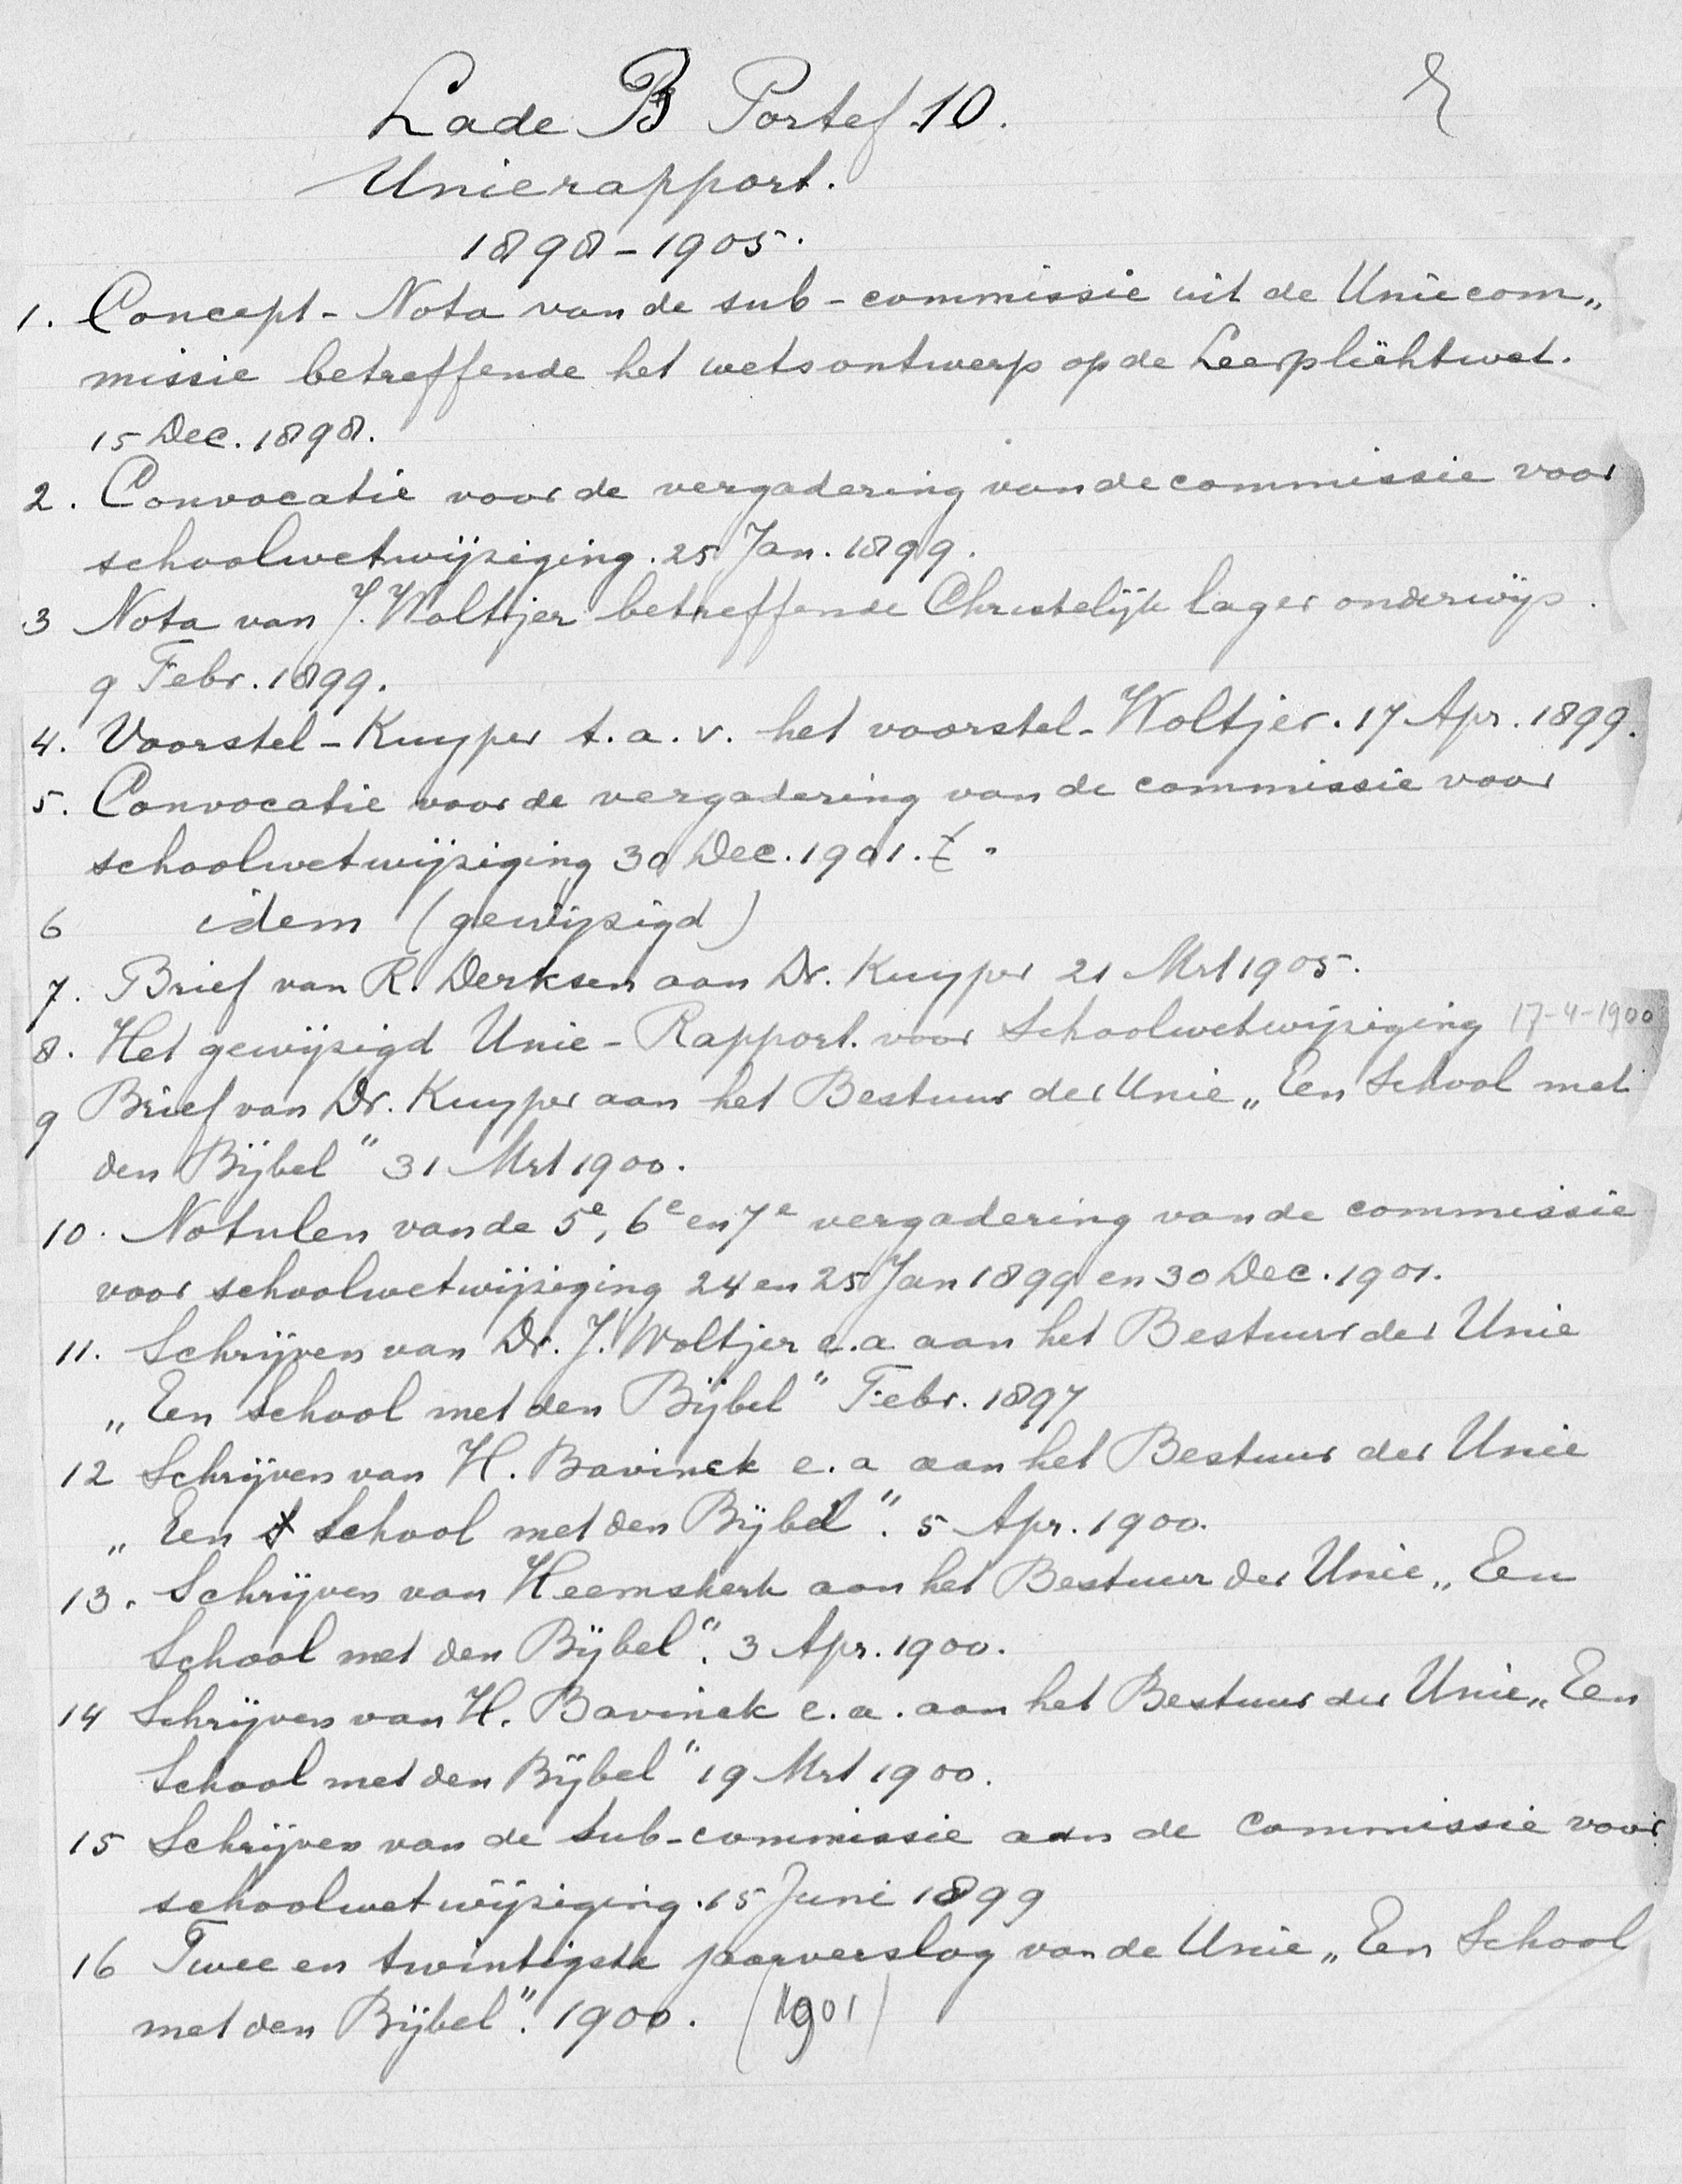 Lade B Portef. 10.
Unierapport.
1898-1905.
1. Concept-Nota van de sub-commissie uit de Uniecom„
missie betreffende het wetsontwerp op de Leerplichtwet.
15 Dec. 1898.
2. Convocatie voor de vergadering van de commissie voor
schoolwetwijziging. 25 Jan. 1899.
3 Nota van J. Woltjer betreffende Christelijk lager onderwijs.
9 Febr. 1899.
4. Voorstel-Kuyper t.a.v. het voorstel-Woltjer. 17 Apr. 1899.
5. Convocatie voor de vergadering van de commissie voor
schoolwetwijziging 30 Dec. 1901.
6 idem (gewijzigd)
7. Brief van R. Derksen aan Dr. Kuyper 21 Mrt 1905.
8. Het gewijzigd Unie-Rapport. voor Schoolwetwijziging 17-4-1900
9 Brief van Dr. Kuyper aan het Bestuur der Unie „Een School met
den Bijbel" 31 Mrt 1900.
10. Notulen van de 5e, 6e en 7e vergadering van de commissie
voor schoolwetwijziging 24 en 25 Jan 1899 en 30 Dec. 1901.
11. Schrijven van Dr. J. Woltjer e.a aan het Bestuur der Unie
„Een School met den Bijbel" Febr. 1897
12 Schrijven van H. Bavinck e.a aan het Bestuur der Unie
„Een School met den Bijbel". 5 Apr. 1900.
13. Schrijven van Heemskerk aan het Bestuur der Unie „Een
School met den Bijbel". 3 Apr. 1900.
14 Schrijven van H. Bavinck e.a. aan het Bestuur der Unie „Een
School met den Bijbel" 19 Mrt 1900.
15 Schrijven van de sub-commissie aan de Commissie voor
schoolwetwijziging. 15 Juni 1899
16 Twee en twintigste jaarverslag van de Unie „Een School
met den Bijbel". 1900. (1901)